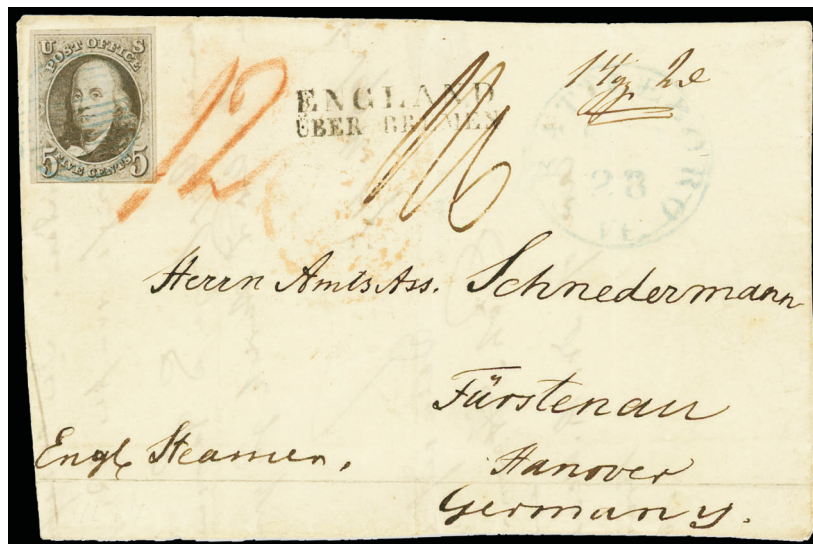 U S
POST OFFICE
5 FIVE CENTS 5
12
ENGLAND
ÜBER BREMEN
23
Herrn Amts Ass. Schnedermann
Fürstenau
Hanover
Germany.
Engl. Steamer.